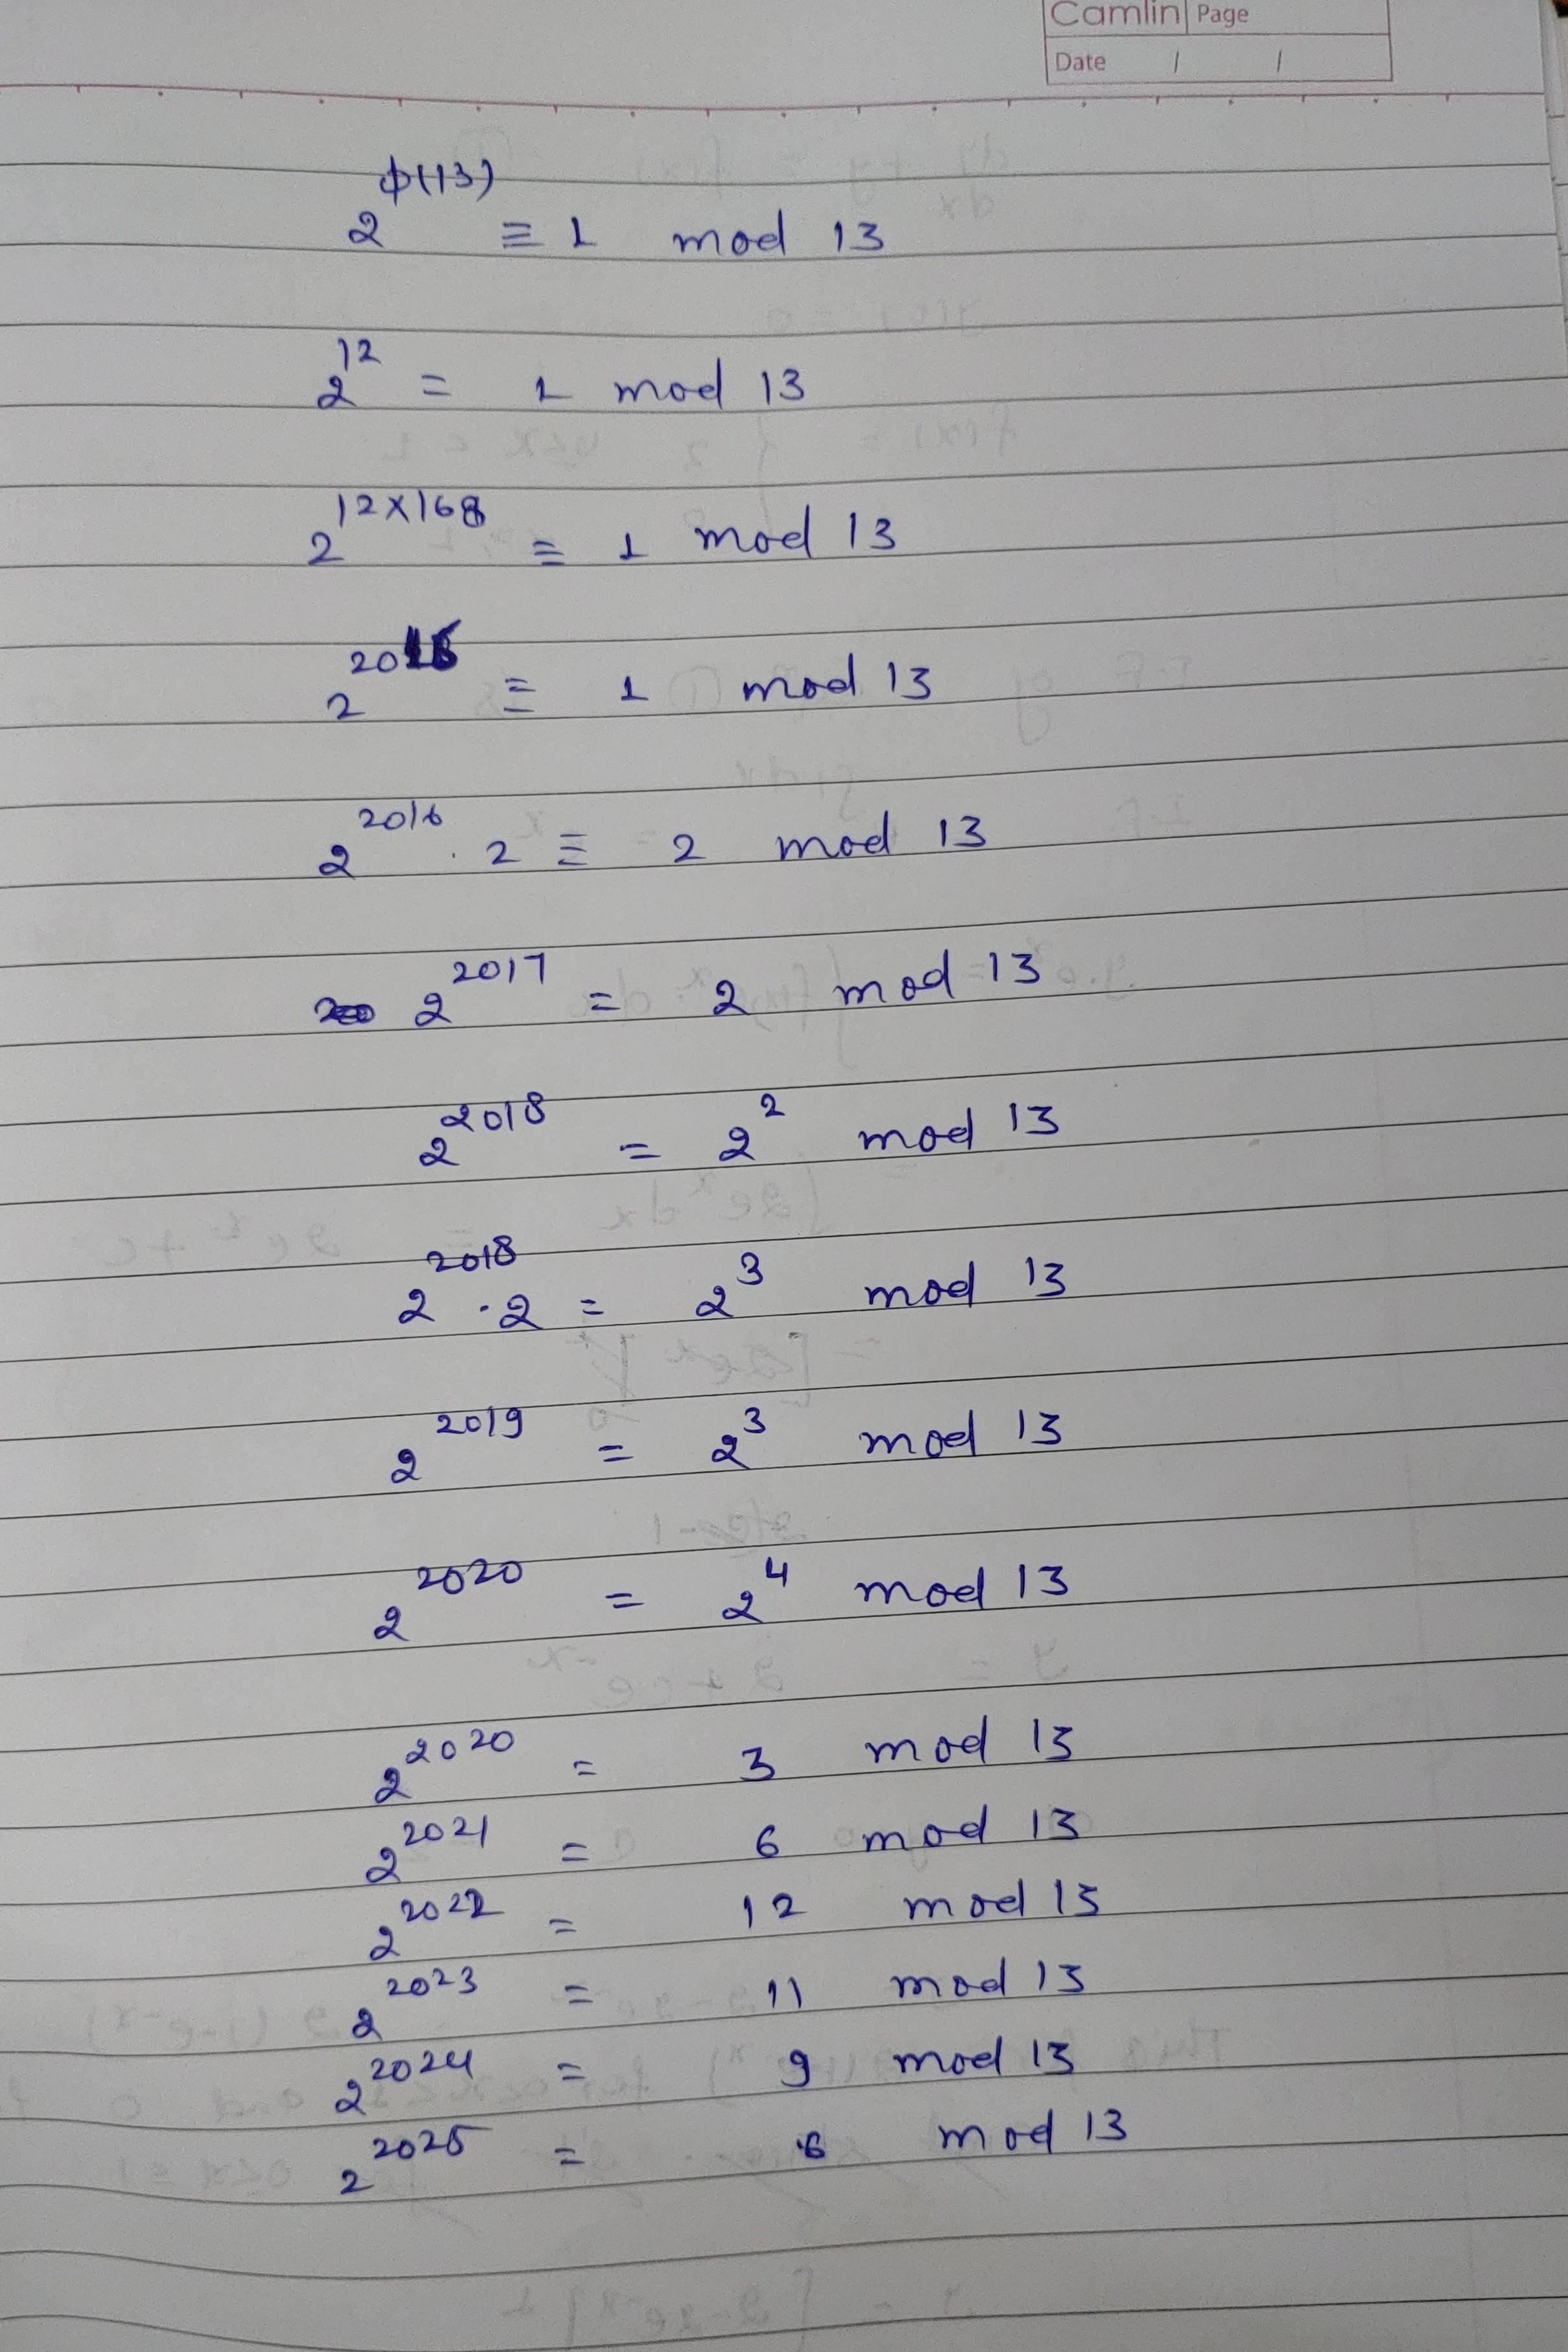 Camlin Page
Date / /
2^ϕ(13) ≡ 1 mod 13
2^12 = 1 mod 13
2^12×168 ≡ 1 mod 13
2^2016 ≡ 1 mod 13
2^2016 . 2 ≡ 2 mod 13
2^2017 = 2 mod 13
2^2018 = 2^2 mod 13
2^2018 . 2 = 2^3 mod 13
2^2019 = 2^3 mod 13
2^2020 = 2^4 mod 13
2^2020 = 3 mod 13
2^2021 = 6 mod 13
2^2022 = 12 mod 13
2^2023 = 11 mod 13
2^2024 = 9 mod 13
2^2025 = 6 mod 13